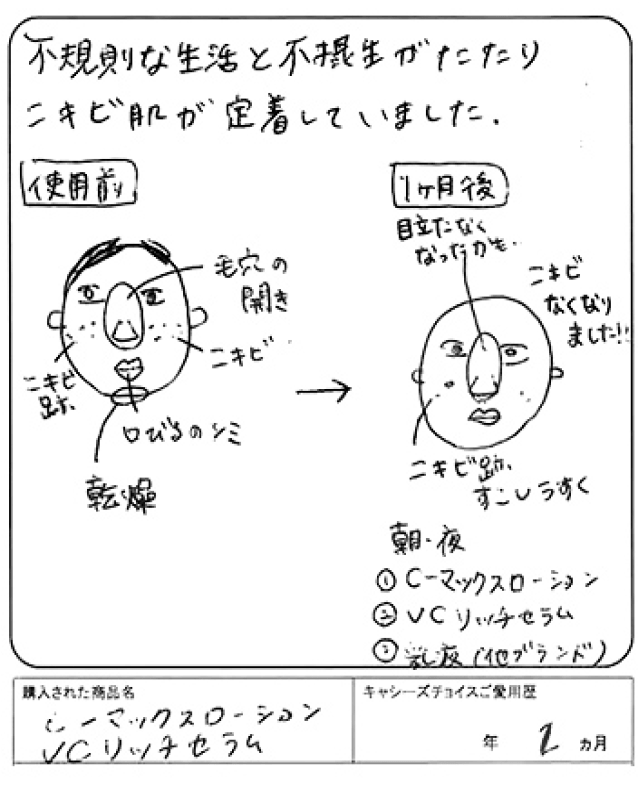 不規則な生活と不摂生がたたり
ニキビ肌が定着していました.
使用前
毛穴の
開き
ニキビ
ニキビ
跡
口びるのシミ
乾燥
1ヶ月後
目立たなく
なったかも..
ニキビ
なくなり
ました!!
ニキビ跡.
すこしうすく
朝・夜
① C-マックスローション
② VCリッチセラム
③ 乳液(他ブランド)
購入された商品名
C-マックスローション
VCリッチセラム
キャシーズチョイスご愛用歴
年 2 カ月